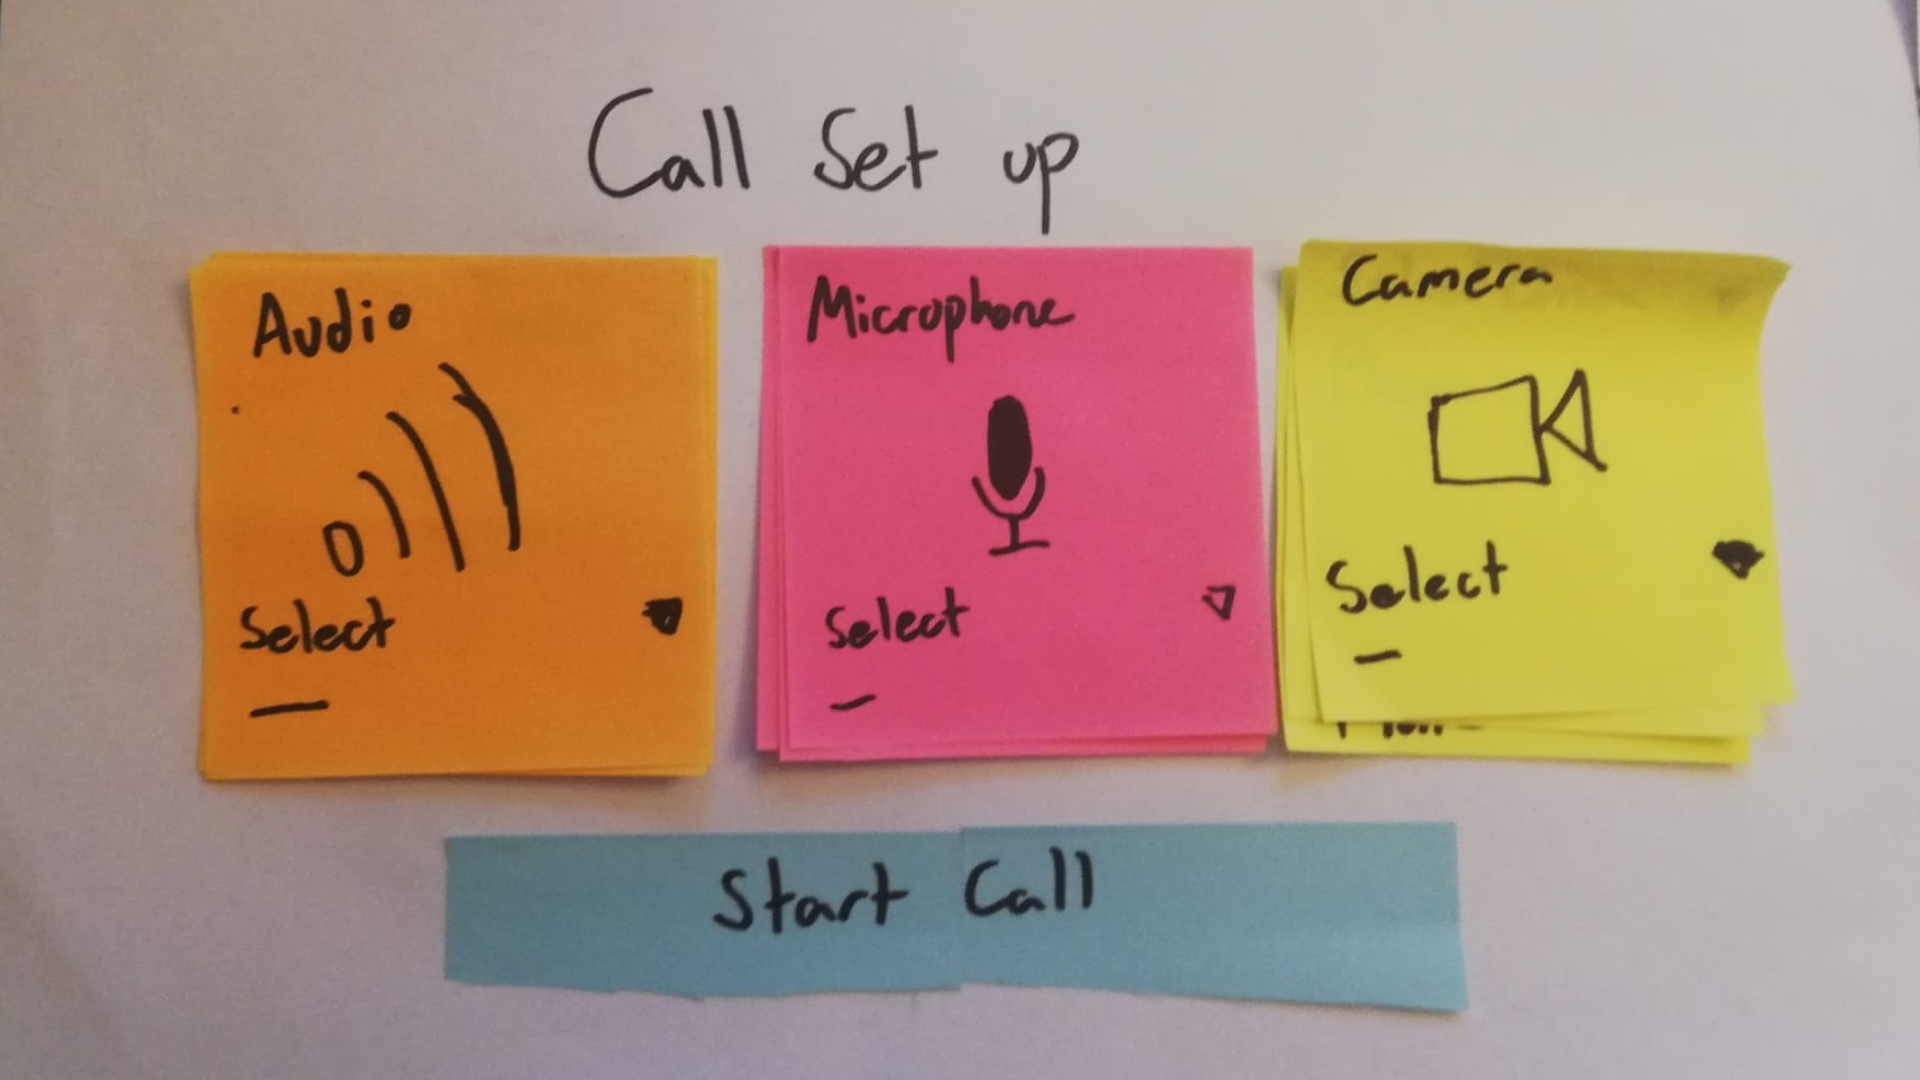 Call Set up
Audio
Select
Microphone
Select
Camera
Select
Start Call